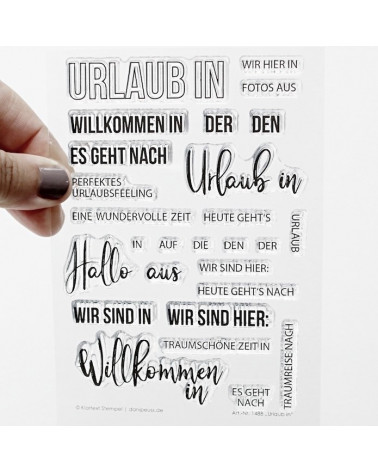 URLAUB IN
WIR HIER IN
FOTOS AUS
WILLKOMMEN IN DER DEN
ES GEHT NACH
Urlaub in
PERFEKTES
URLAUBSFEELING
EINE WUNDERVOLLE ZEIT HEUTE GEHT'S
URLAUB
IN AUF DIE DEN DER
Hallo aus
WIR SIND HIER:
HEUTE GEHT'S NACH
WIR SIND IN WIR SIND HIER:
TRAUMSCHÖNE ZEIT IN
TRAUMREISE NACH
Willkommen
in
ES GEHT
NACH